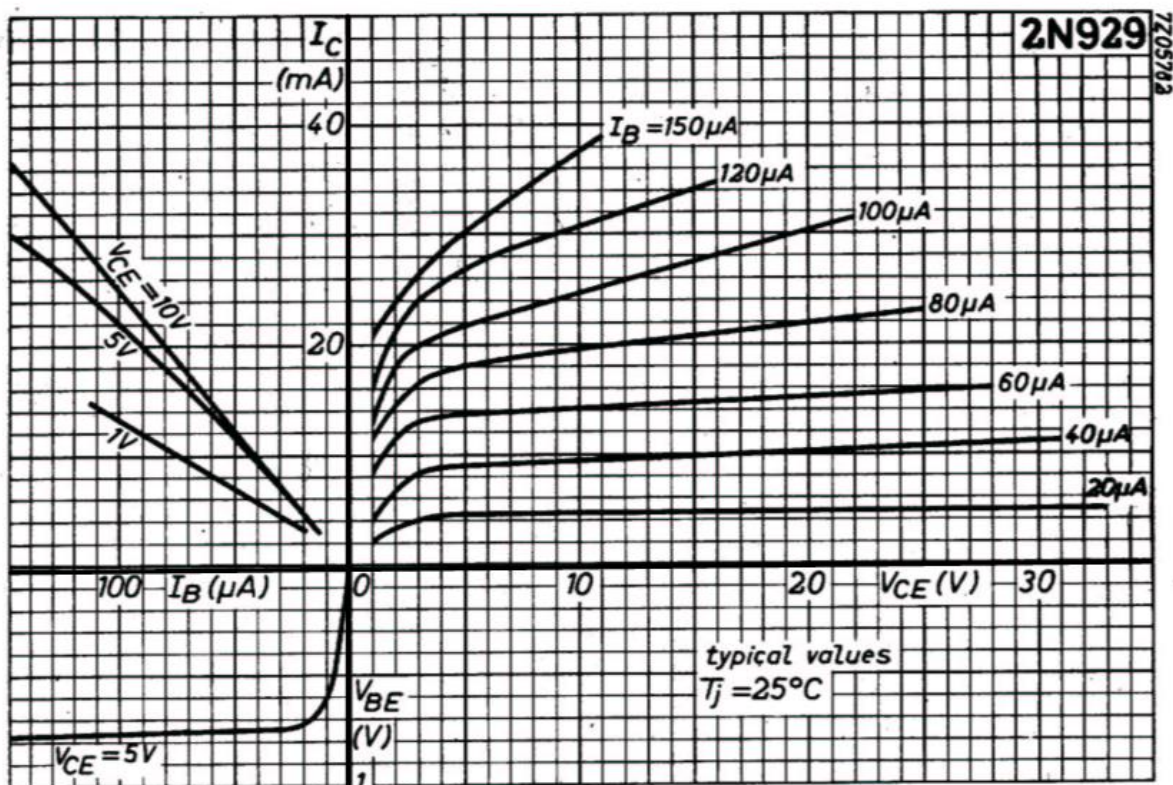 2N929
7Z05702
I_C
(mA)
40
20
I_B=150µA
120µA
100µA
80µA
60µA
40µA
20µA
V_CE=10V
5V
1V
100 I_B(µA) 0 10 20 V_CE(V) 30
typical values
Tj=25°C
V_BE
(V)
1
V_CE=5V